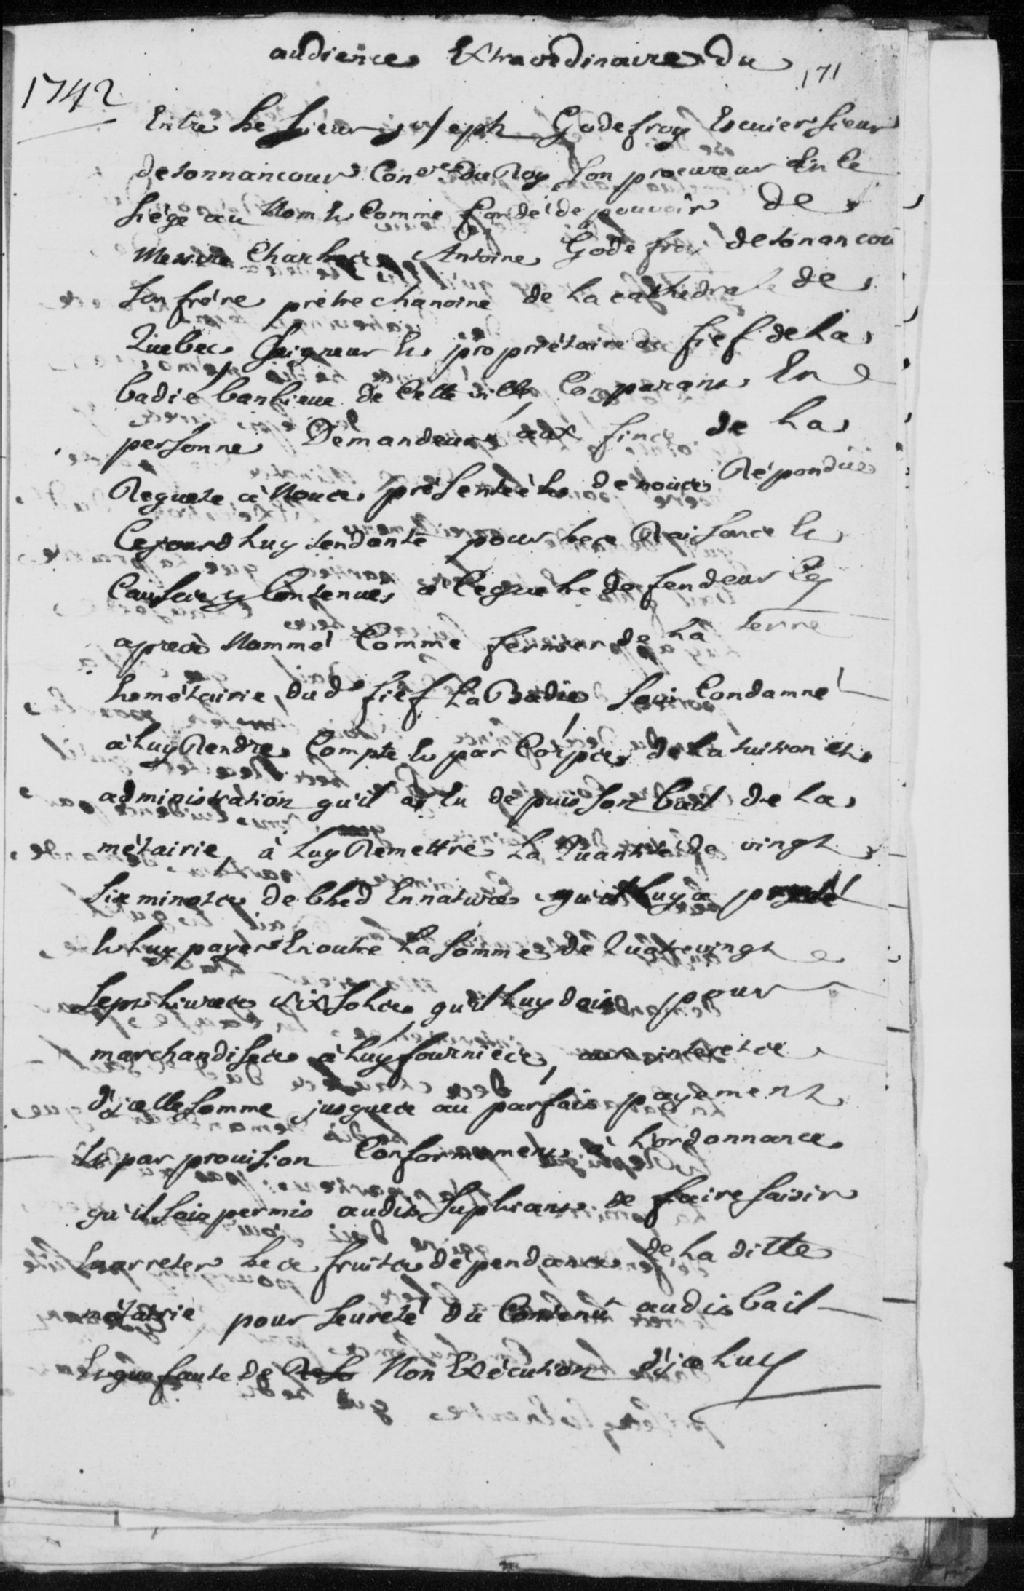 audience Extraordinaire du
171
1742
Entre Le Sieur Joseph Godefroy Escuier Sieur
de tonnancour Con.er du Roy Son procureur En Ce
Siege au Nom Et Comme fondé de pouvoir de
Messire Charles Antoine Godefroy de tonancou
Son frére prêtre chanoine de La cathedrale de
Quebec Seigneur Et proprietaire du fief de La
badie banlieue de Cette ville Comparant En
personne Demandeur aux fins de La
Requete à Nous présentée Et de nous Répondüe
Cejourdhuy tendante pour Les Raisons Et
Causes y Contenues à Ceque Le defendeur Cy
apres Nommé Comme fermier de La terre
Et métairie dud. fief La Badie Soit Condamné
à Luy Rendre Compte Et par Corps de La
administration qu'il a Eu depuis Son bail de La
métairie, à Luy Remettre La Quantité de vingt
Six minots de bled En nature qu'il Luy a presté
Et Luy payer En outre La Somme de Quatrevingt
Sept Livres dix Sols qu'il Luy doit pour
marchandises à Luy fournies, aux interets
d'jcelle Somme jusques au parfait payement
Et par provision Conformement à L'ordonnance
qu'il Soit permis audit Supliant de faire Saisir
Et arreter Les fruits dépendans de La ditte
métairie pour Seureté du Contenü audit bail
Et que faute de Non Exécution d'jceluy